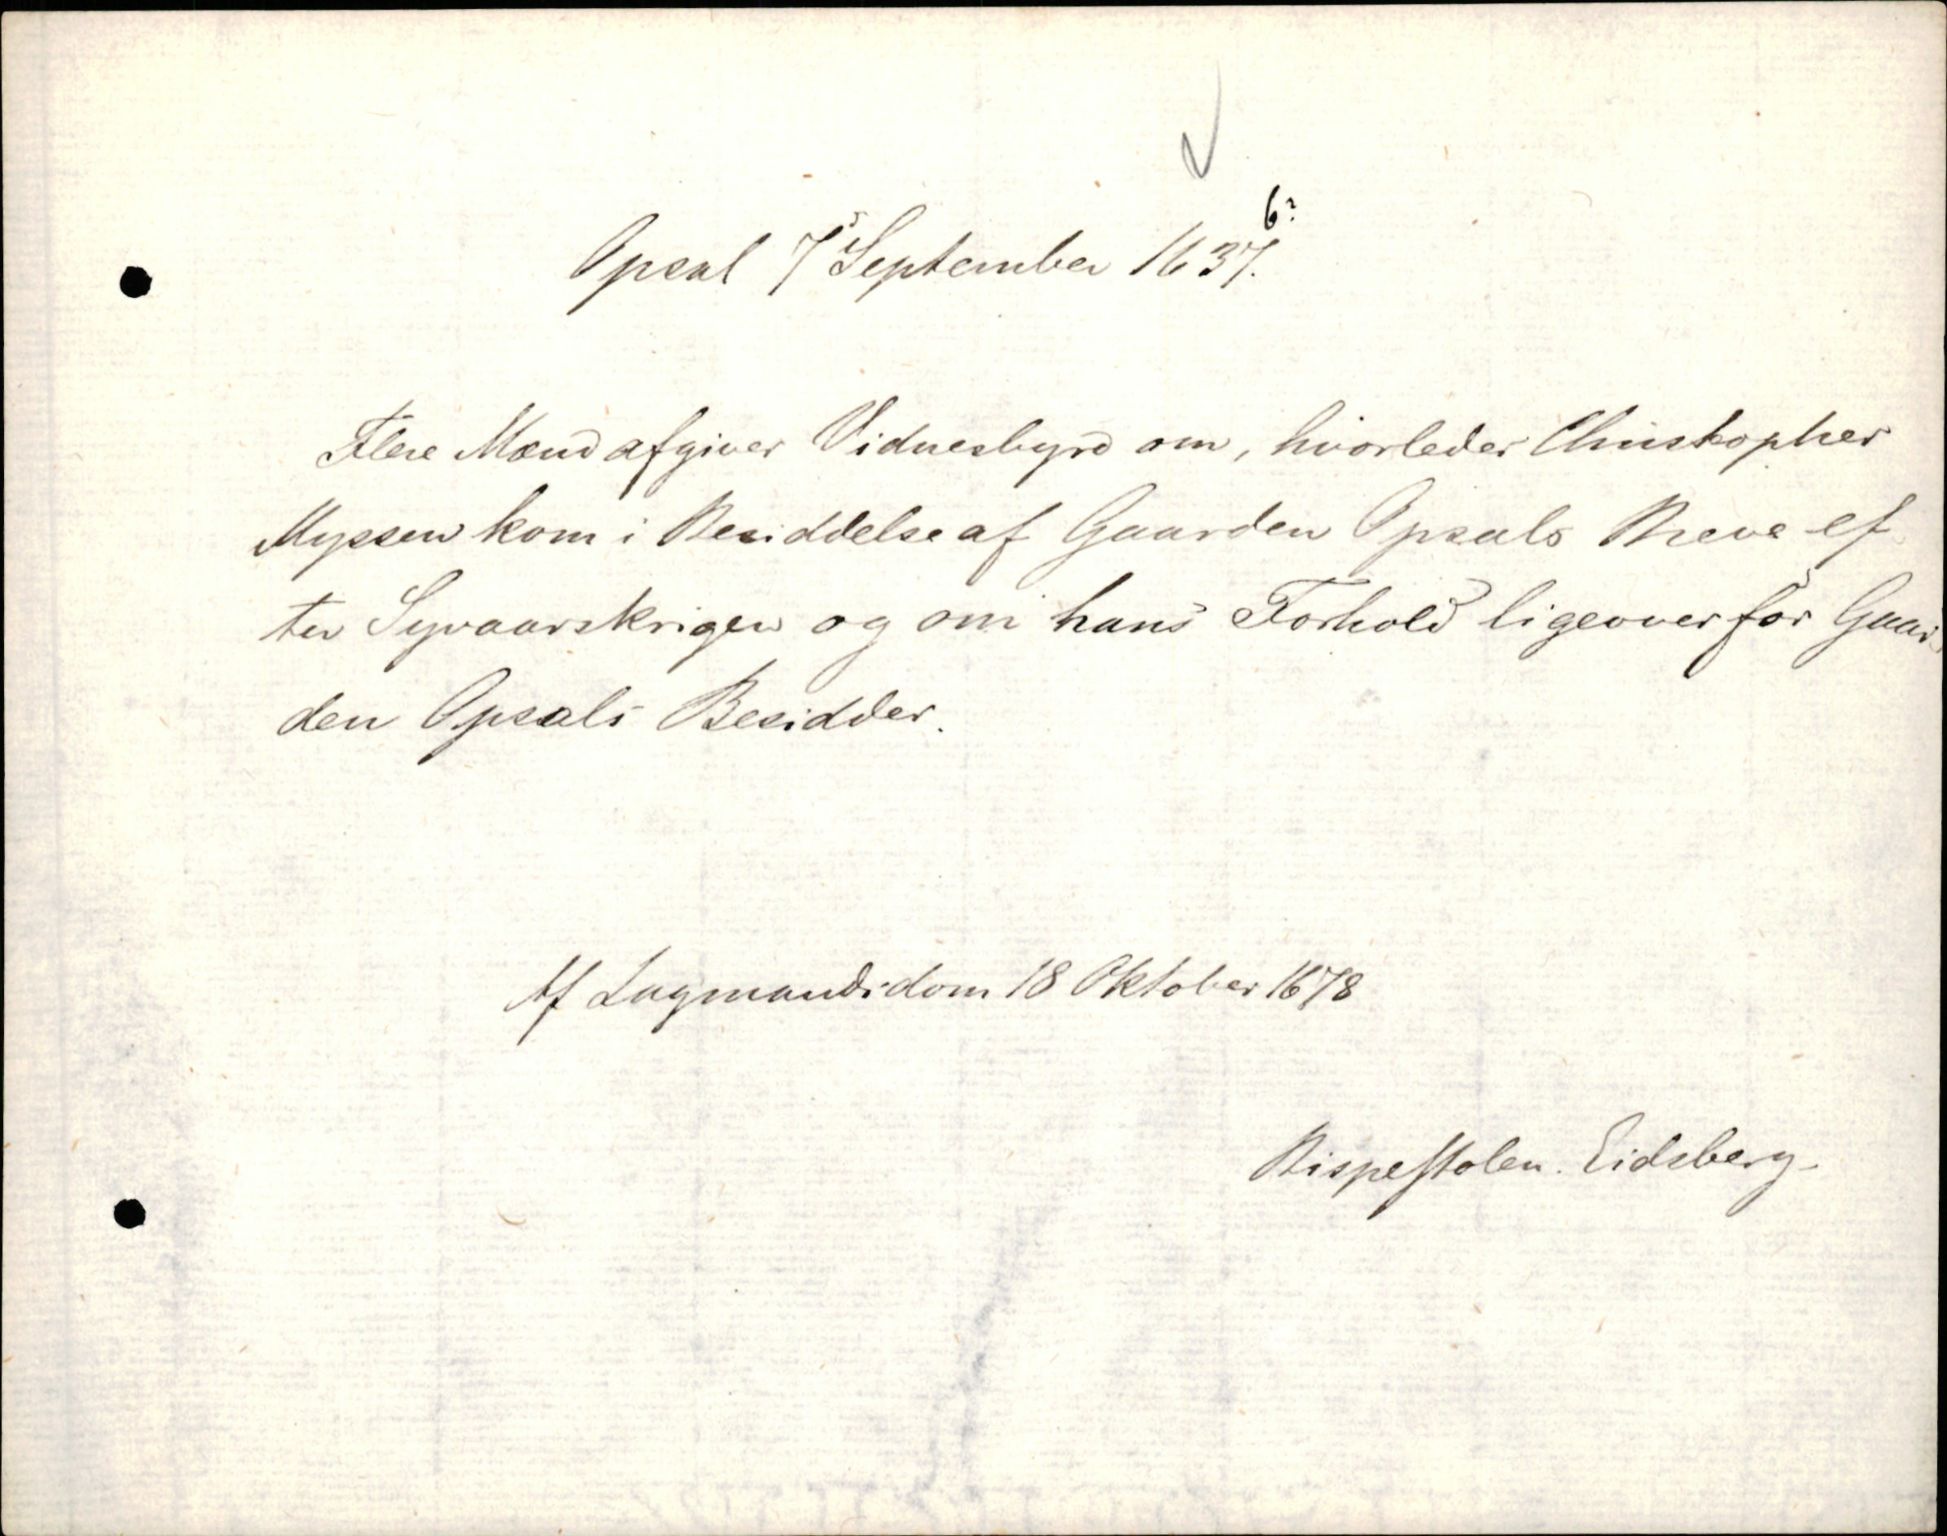 6?
Opsal 7 September 1637.
Flere Mænd afgiver Vidnesbyrd om, hvorledes Christopher
Myssen kom i Besiddelse af Gaarden Opsals Breve ef
ter Syvaarskrigen og om hans Forhold ligeoverfor Gaar
den Opsals Besidder.
Af Lagmandsdom 18 Oktober 1678
Bispestolen. Eidsberg.